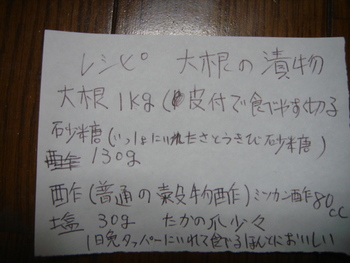 レシピ 大根の漬物
大根1kg(皮付で食べやすく切る
砂糖(いっしょにいれたさとうきび砂糖)
130g
酢(普通の穀物酢)ミツカン酢80cc
塩 30g たかの爪少々
1日免タッパーにいれて食べるほんとにおいしい